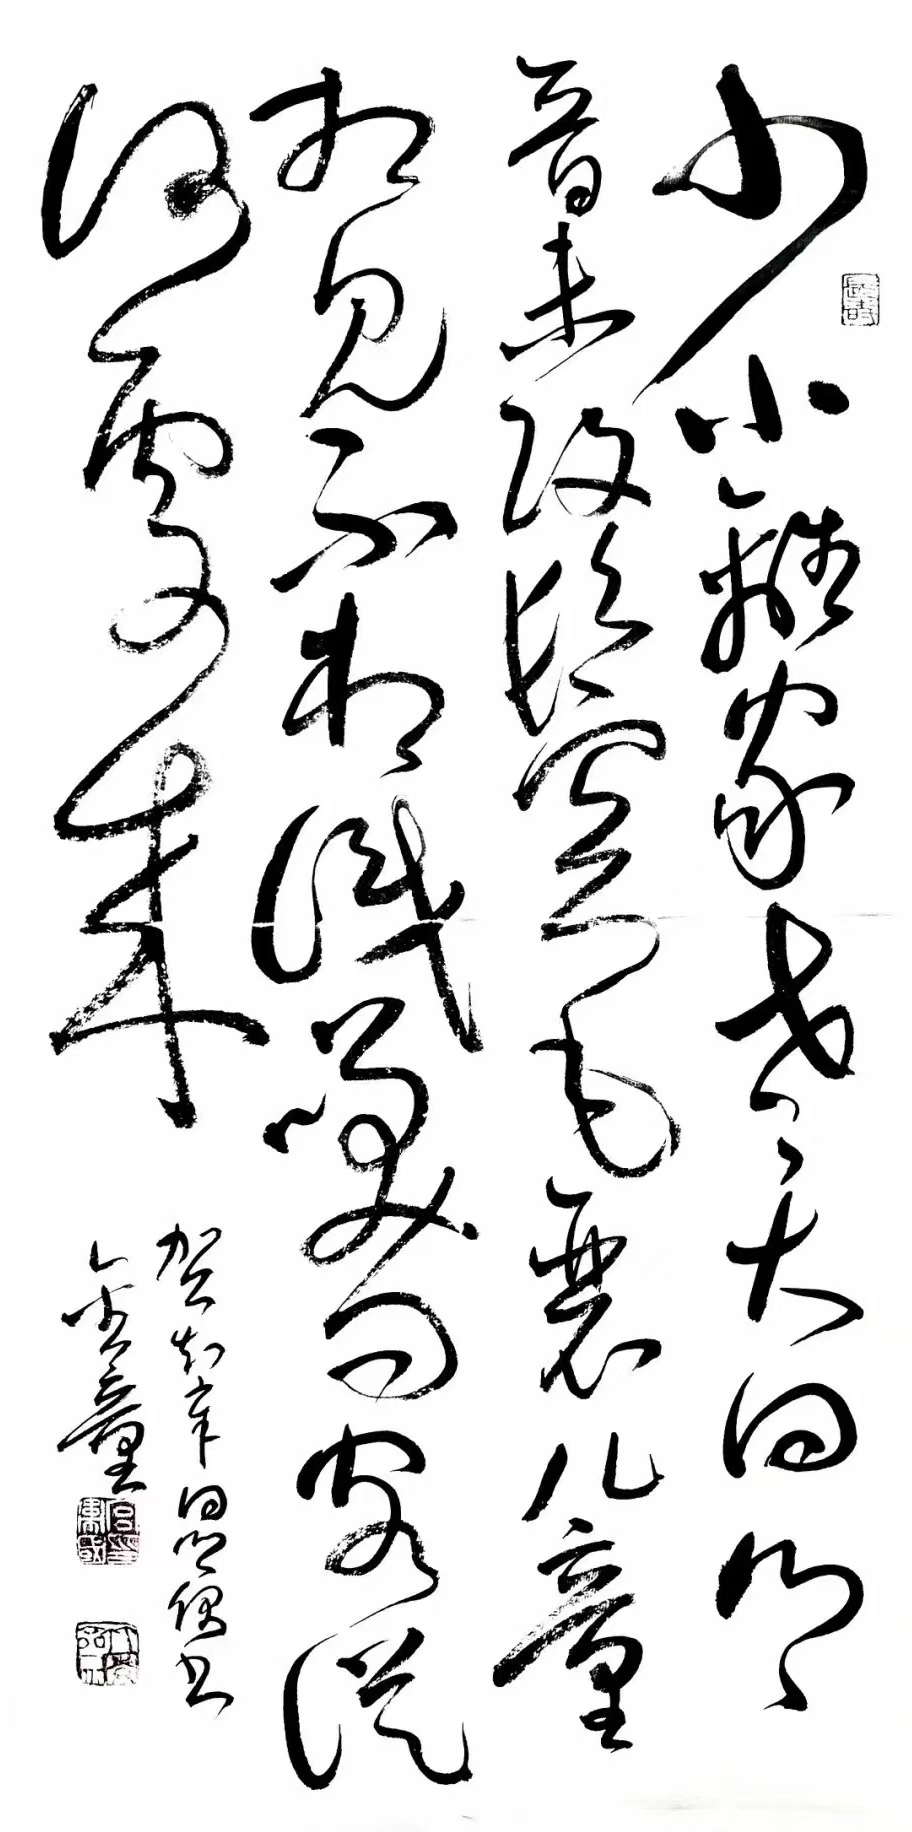 少小離家老大回鄉
音未改鬢毛衰儿童
相見不相識笑問客從
何處來
賀知章回鄉偶書
金童